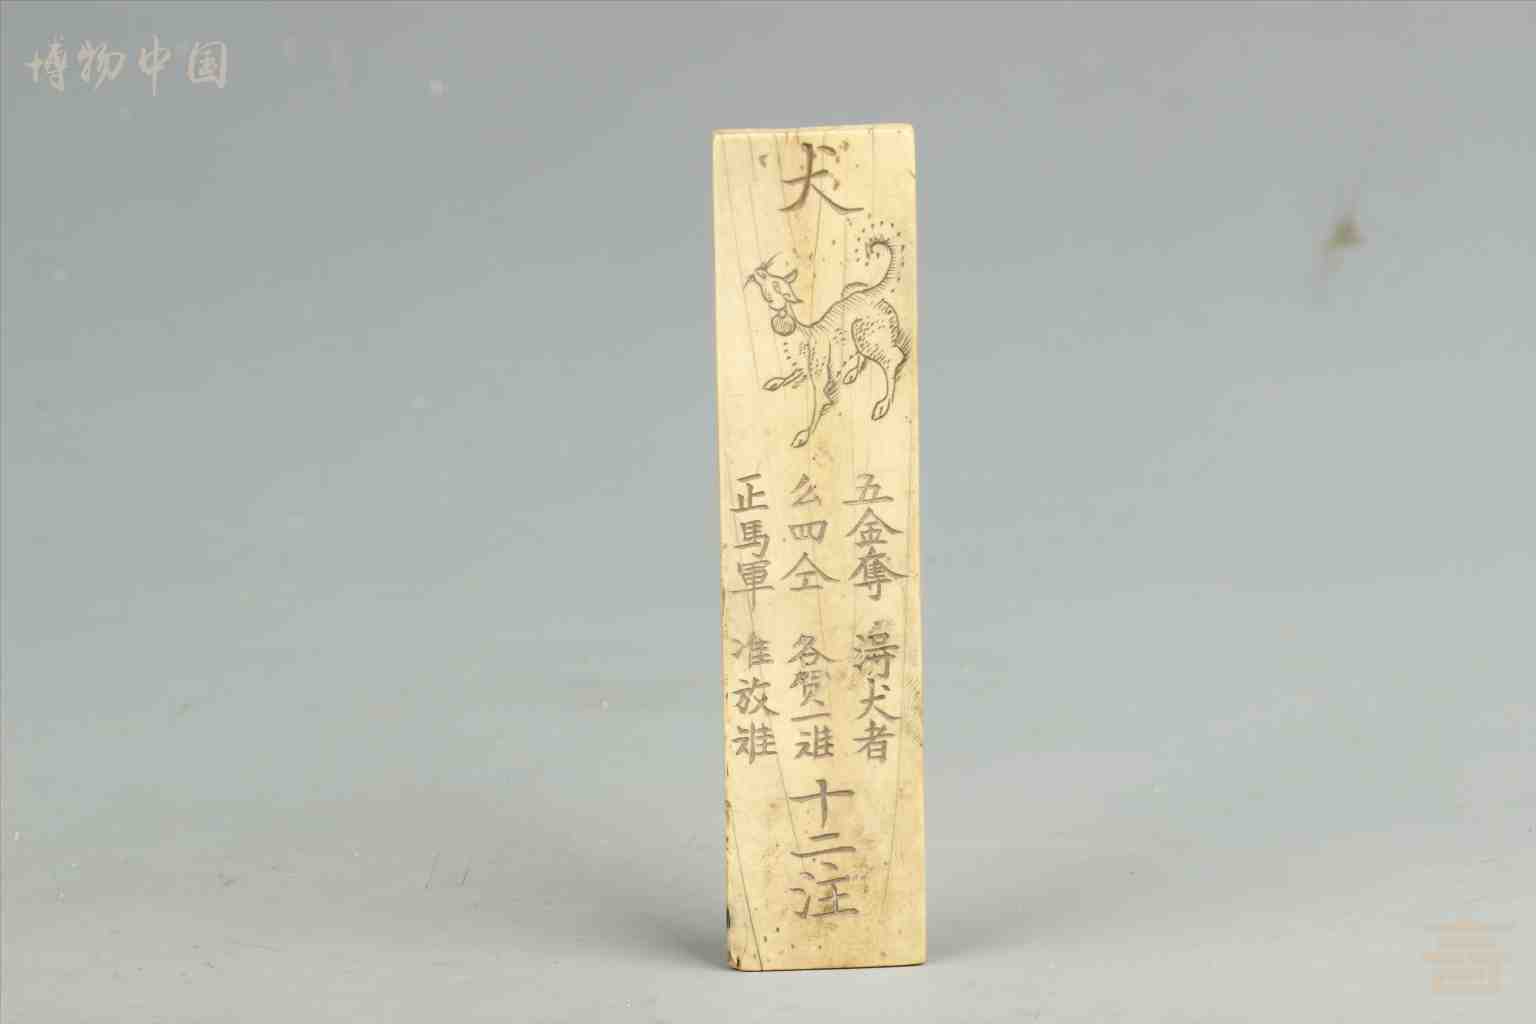 博物中国
犬
五金奪 得犬者
么四仝 各賀一誰
正馬軍 准放誰
十二注